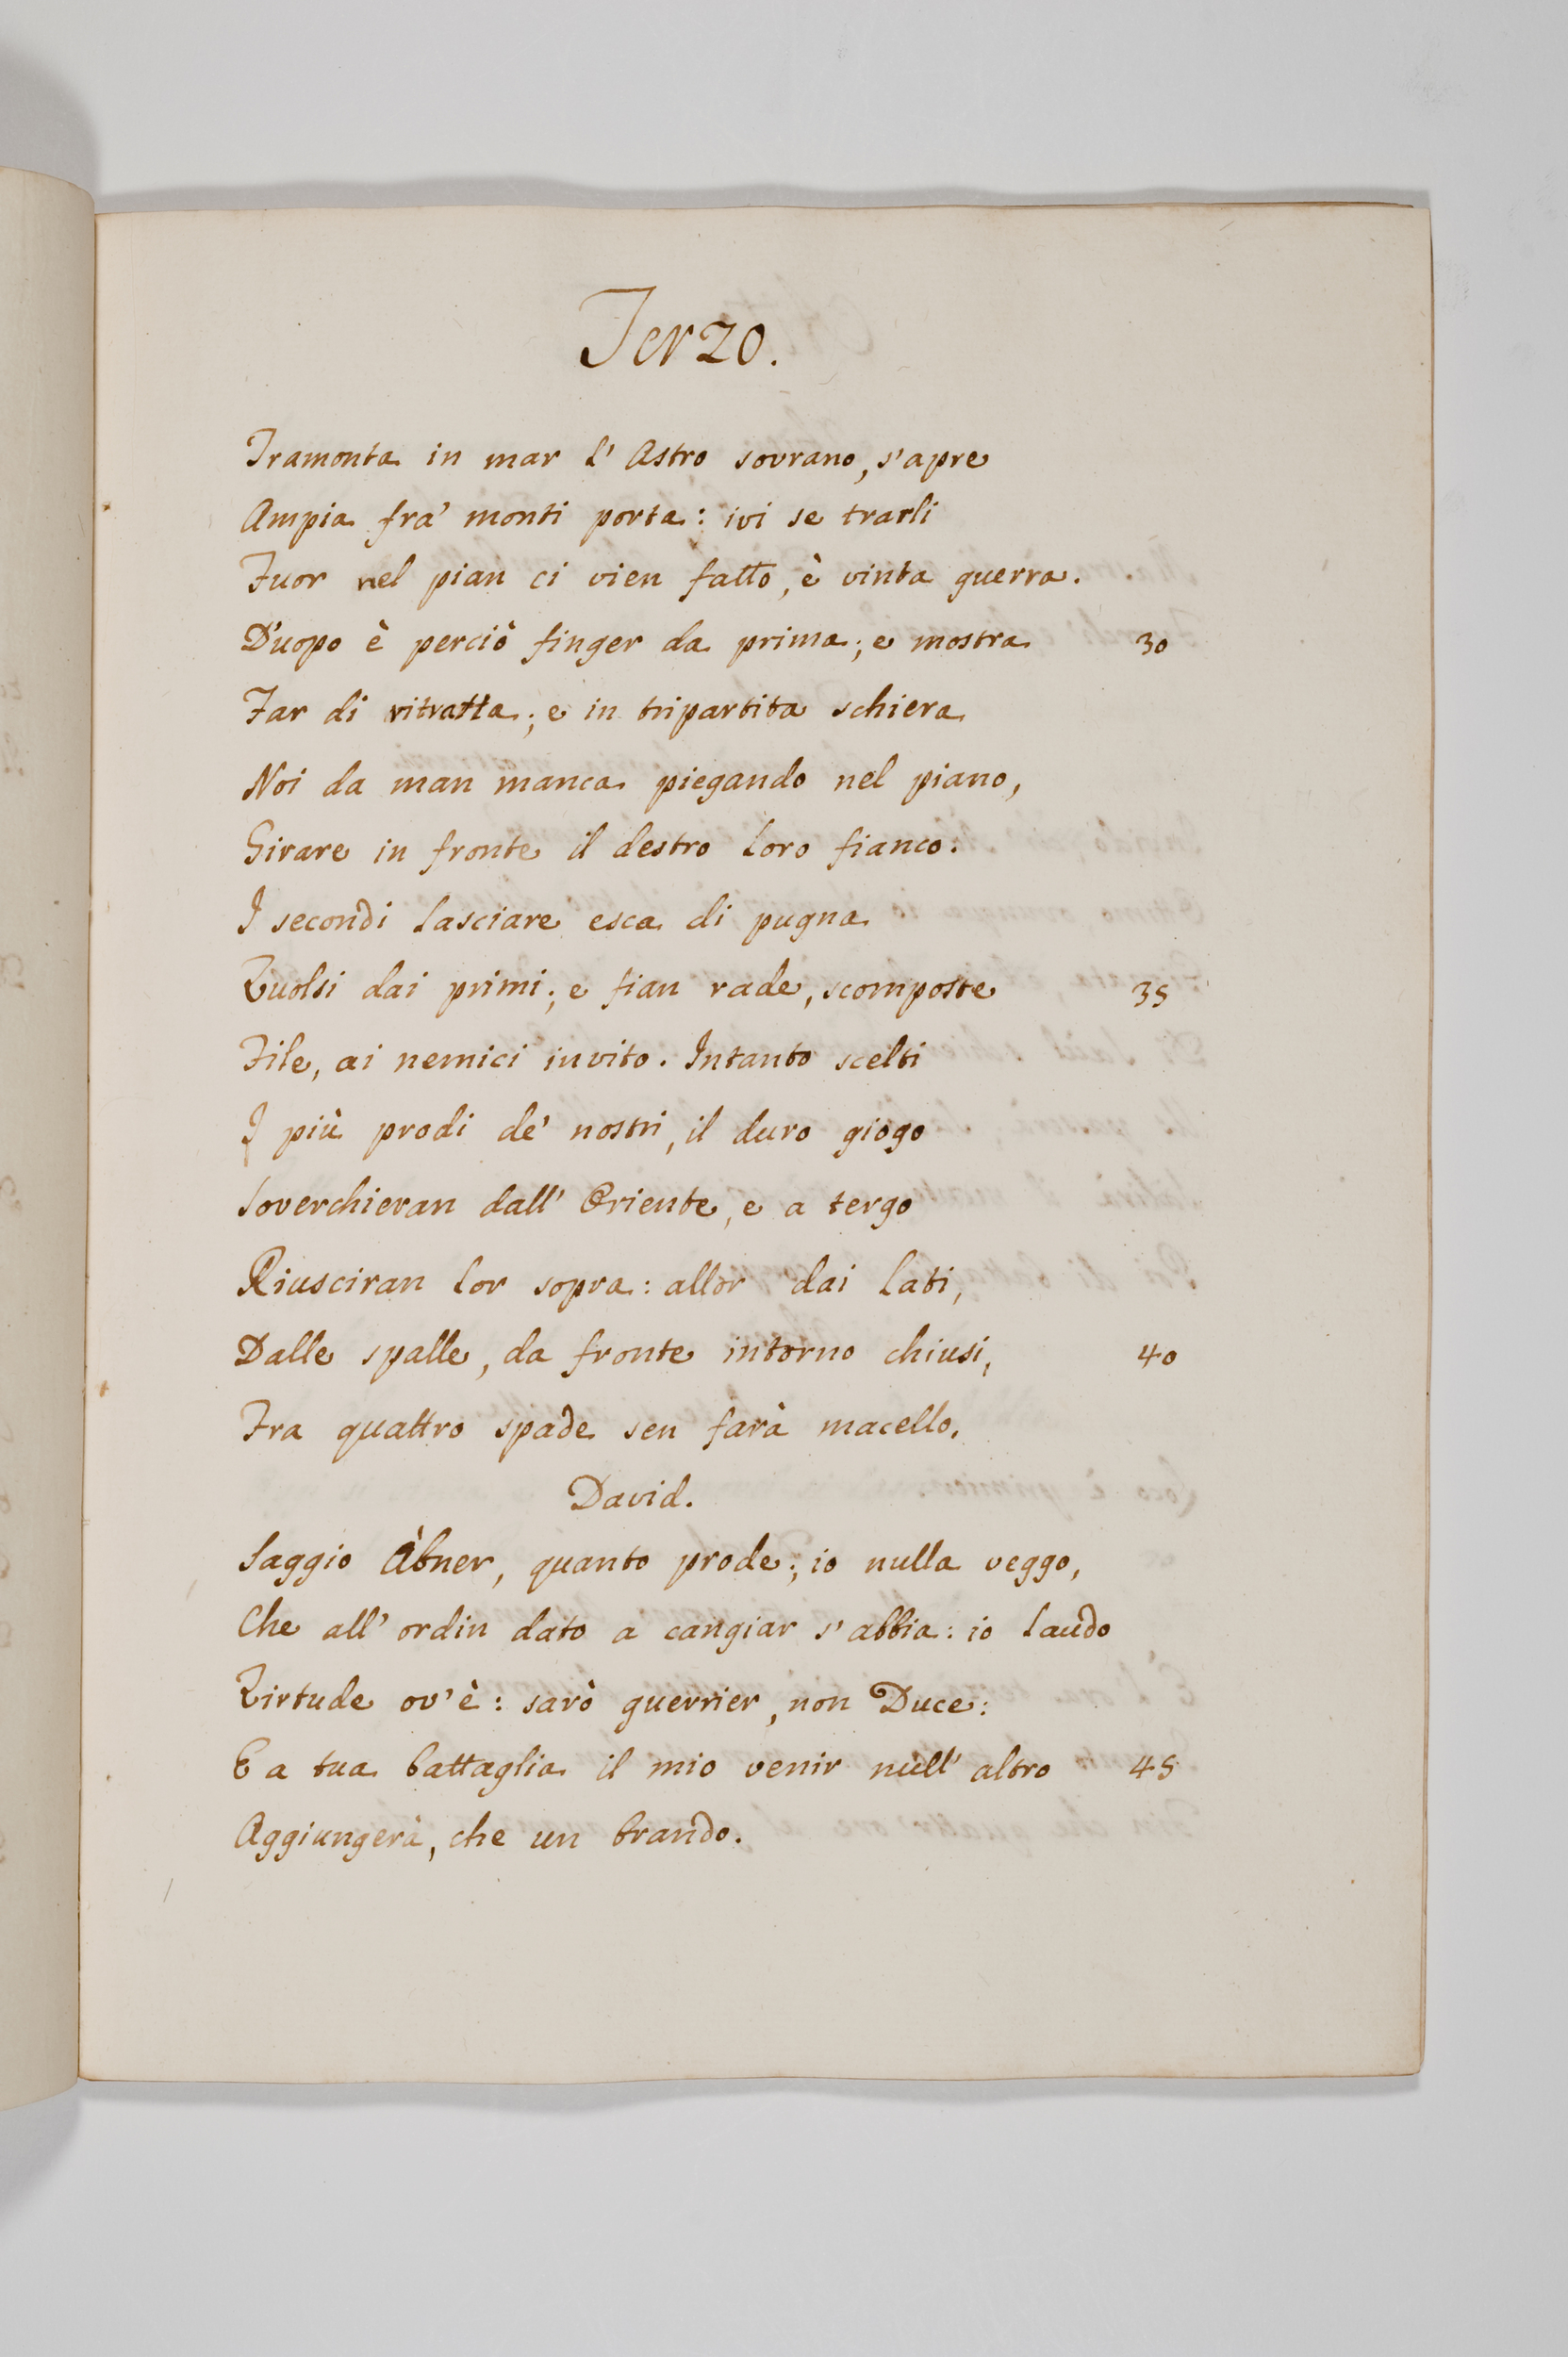 Terzo.
Tramonta in mar l' Astro sovrano, s'apre
Ampia fra' monti porta: ivi se trarli
Fuor nel pian ci vien fatto, è vinta guerra.
D'uopo è perciò finger da prima; e mostra 30
Far di ritratta; e in tripartita schiera
Noi da man manca piegando nel piano,
Girare in fronte il destro loro fianco.
I secondi lasciare esca di pugna
Vuolsi dai primi; e fian rade, scomposte 35
File, ai nemici invito. Intanto scelti
I più prodi de' nostri, il duro giogo
Soverchieran dall' Oriente, e a tergo
Riusciran lor sopra: allor dai lati,
Dalle spalle, da fronte intorno chiusi, 40
Fra quattro spade sen farà macello.
David.
Saggio Àbner, quanto prode; io nulla veggo,
Che all' ordin dato a cangiar s'abbia: io laudo
Virtude ov'è: sarò guerrier, non Duce:
E a tua battaglia il mio venir null' altro 45
Aggiungerà, che un brando.